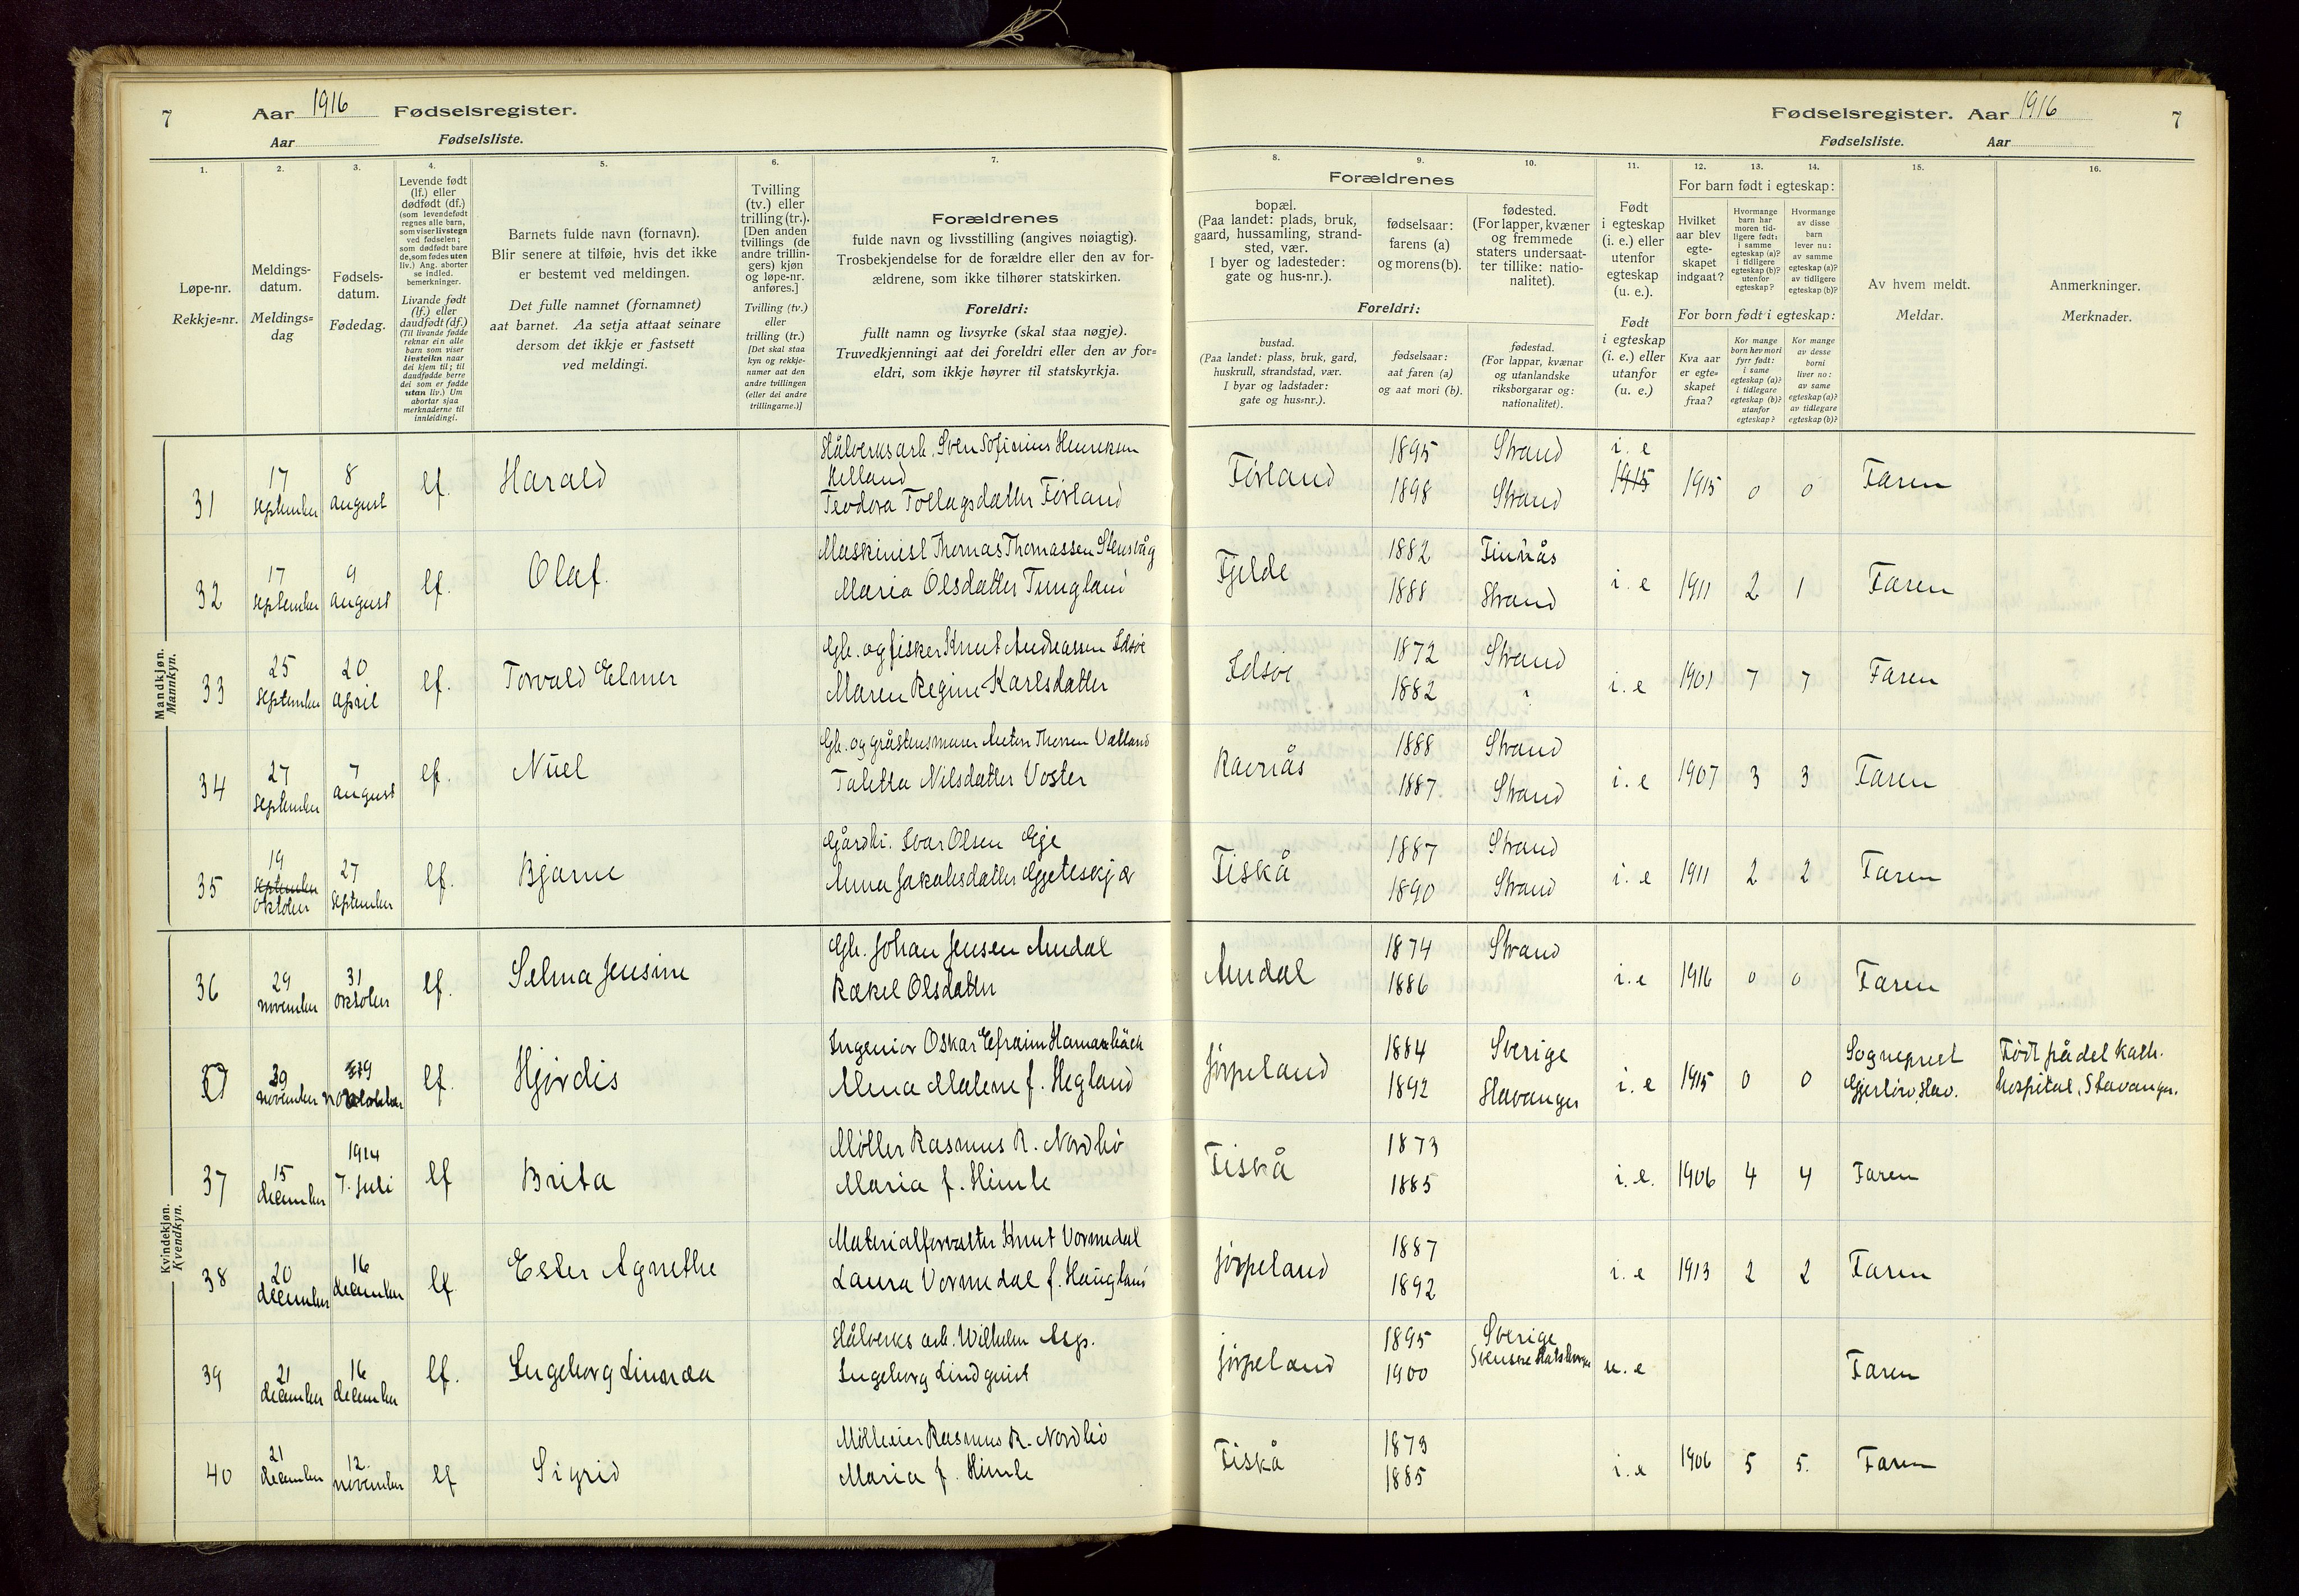 7 Aar 1916 Fødselsregister.
Aar Fødselsliste.
Fødselsregister. Aar 1916 7
Fødselsliste. Aar
1.
Løpe-nr.
Rekkje=nr.
2.
Meldings-
datum.
Meldings=
dag
3.
Fødsels-
datum.
Fødedag.
4.
Levende født
(lf.) eller
dødfødt (df.)
(som levendefødt
regnes alle barn,
som viser livstegn
ved fødselen;
som dødfødt bare
de, som fødes uten
liv.) Ang. aborter
se indled.
bemerkninger.
Livande født
(lf.) eller
daudfødt (df.)
(Til livande fødde
reknar ein alle
barn som viser
livsteikn naar
dei kjem til; til
daudfødde berre
dei som er fødde
utan liv.) Um
abortar sjaa
merknaderne til
innleidingi.
5.
Barnets fulde navn (fornavn).
Blir senere at tilføie, hvis det ikke
er bestemt ved meldingen.
Det fulle namnet (fornamnet)
aat barnet. Aa setja attaat seinare
dersom det ikkje er fastsett
ved meldingi.
6.
Tvilling
(tv.) eller
trilling (tr.).
[Den anden
tvillings (de
andre trillin-
gers) kjøn
og løpe-nr.
anføres.]
Tvilling (tv.)
eller
trilling (tr.)
[Det skal staa
kyn og rekkje-
numer aat den
andre tvillingen
(eller dei andre
trillingarne.)]
7.
Forældrenes
fulde navn og livsstilling (angives nøiagtig).
Trosbekjendelse for de forældre eller den av for-
ældrene, som ikke tilhører statskirken.
Foreldri:
fullt namn og livsyrke (skal staa nøgje).
Truvedkjenningi aat dei foreldri eller den av for=
eldri, som ikkje høyrer til statskyrkja.
Forældrenes
8.
bopæl.
(Paa landet: plads, bruk,
gaard, hussamling, strand-
sted, vær.
I byer og ladesteder:
gate og hus-nr.).
9.
fødselsaar:
farens (a)
og morens (b).
10.
fødested.
(For lapper, kvæner
og fremmede
staters undersaat-
ter tillike: natio-
nalitet).
Foreldri:
bustad.
(Paa landet: plass, bruk, gard,
huskrull, strandstad, vær.
I byar og ladstader:
gate og hus=nr.).
fødselsaar:
aat faren (a)
og aat mori (b).
fødestad.
(For lappar, kvænar
og utanlandske
riksborgarar og:
nationalitet).
11.
Født
i egteskap
(i. e.) eller
utenfor
egteskap
(u. e.).
Født
i egteskap
(i. e.) eller
utanfor
(u. e.)
12. 13. 14.
For barn født i egteskap:
Hvilket
aar blev
egte-
skapet
indgaat?
Hvormange
barn har
moren tid-
ligere født:
i samme
egteskap (a)?
i tidligere
egteskap (b)?
utenfor
egteskap?
Hvormange
av disse
barn
lever nu:
av samme
egteskap (a)?
av tidligere
egteskap (b)?
For born født i egteskap:
Kva aar
er egte=
skapet
fraa?
Kor mange
born hev mori
fyrr født:
i same
egteskap (a)?
i tidlegare
egteskap (b)?
utanfor
egteskap?
Kor mange
av desse
borni
liver no:
av same
egteskap (a)?
av tidlegare
egteskap (b)?
15.
Av hvem meldt.
Meldar.
16.
Anmerkninger.
Merknader.
Mandkjøn.
Mannkyn.
31 17 september 8 august lf. Harald
Stålverksarb. Sven Sofinius Henriksen
Helland
Teodora Tollagsdatter Førland
Førland 1895 Strand i. e
1898 Strand 1915 1915 0 0 Faren
32 17 september 9 august lf. Olaf.
Maskinist Thomas Thomassen Stensvåg
Maria Olsdatter Tungland
Fjelde 1882 Finnås
1888 Strand i. e 1911 2 1 Faren
33 25 september 20 april lf. Torvald Elmer
Gb. og fisker Knut Andreassen Idsøe
Maren Regine Karlsdatter
Idsøe 1872 Strand
1882 " i. e 1901 7 7 Faren
34 27 september 7 august lf. Nüel
Gb. og gråstensmurer Anton Thorsen Valland
Taletta Nilsdatter Voster
Ravnås 1888 Strand
1887 Strand i. e 1907 3 3 Faren
35 19 september oktober 27 september lf. Bjarne
Gårdbr. Ivar Olsen Gje
Anna Jakobsdatter Gjeteskjær
Fiskå 1887 Strand
1890 Strand i. e 1911 2 2 Faren
Kvindekjøn.
Kvendkyn.
36 29 november 31 oktober lf. Selma Jensine
Gb. Johan Jensen Amdal
Rakel Olsdatter
Amdal 1874 Strand
1886 i. e 1916 0 0 Faren
30 november lf. Hjørdis
Ingeniør Oskar Efraim Hamarbäck
Alma Malene f. Hegland
Jørpeland 1884 Sverige
1892 Stavanger i. e 1915 0 0
Sogneprest
Gjerløw, Stav.
Født på det kath.
hospital, Stavanger.
37 15 december 1914 7. juli lf Brita
Møller Rasmus R. Nordbø
Maria f. Himle
Fiskå 1873
1885 i. e. 1906 4 4 Faren
38 20 december 16 december lf. Ester Agnethe
Materialforvalter Knut Vormedal
Laura Vormedal f. Haugland
Jørpeland 1887
1892 i. e 1913 2 2 Faren
39 21 december 16 december lf. Ingeborg Linnea
Stålverks arb. Wilhelm Asp.
Ingeborg Lindquist
Jørpeland 1895 Sverige
1900 Svenske statsborgere u. e Faren
40 21 december 12. november lf Sigrid
Mølleeier Rasmus R. Nordbø
Maria f. Himle
Fiskå 1873
1885 i. e 1906 5 5. Faren